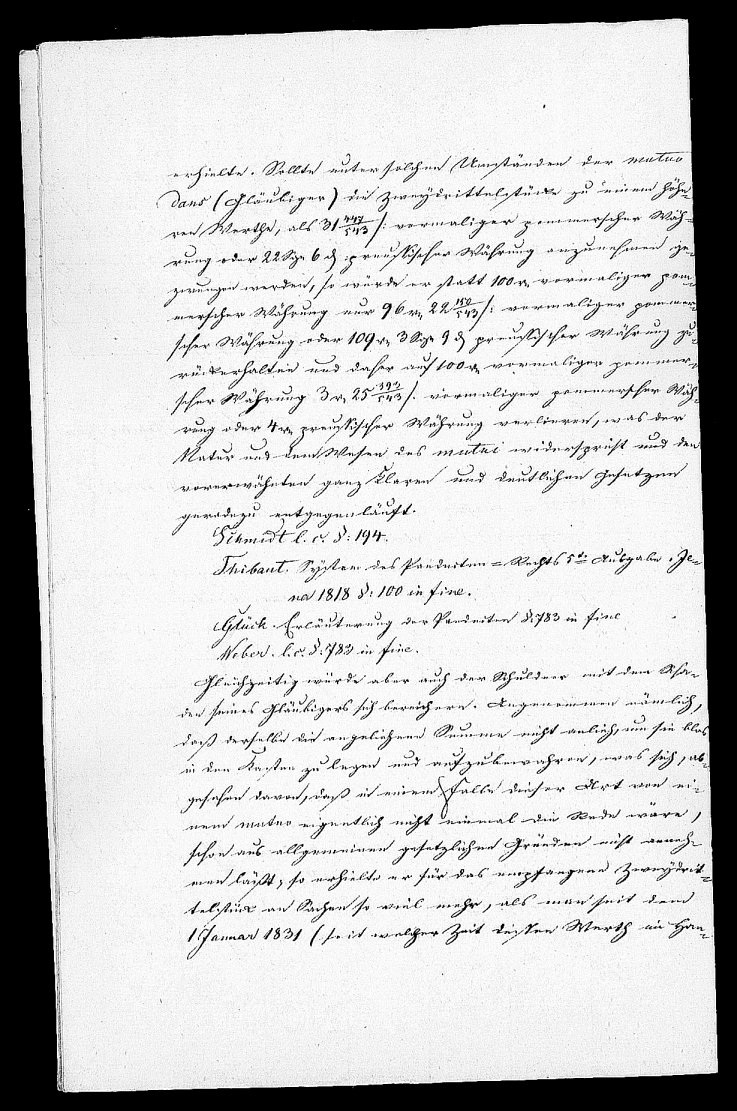 erhielte. Sollte unter solchen Umständen der mutuo
dans (Gläubiger) die Zweydrittelstücke zu einem höhe-
ren Werthe, als 31 447/543 ß: vormaliger pommerscher Wäh-
rung oder 22 Sgr 6 d preußischer Währung anzunehmen ge-
zwungen werden, so würde er statt 100 r vormaliger pom-
merscher Währung nur 96 r 22 150/543 ß: vormaliger pommer-
scher Währung oder 109 r 3 Sgr 9 d preussischer Währung zu-
rückerhalten und daher auf 100 r vormaliger pommer-
scher Währung 3 r 25 393/543 ß. vormaliger pommerscher Wäh-
rung oder 4 r preussischer Währung verlieren, was der
Natur und dem Wesen des mutui widerspricht und den
vorerwähnten ganz klaren und deutlichen Gesetzen
geradezu entgegenläuft.
Schmidt l. c. §: 194.
Thibaut. System des Pandecten-Rechts 5te Ausgabe. Je-
na 1818 §: 100 in fine.
Glück. Erläuterung der Pandecten §:783 in fine
Weber. l. c. §:783 in fine.
Gleichzeitig würde aber auch der Schuldner mit dem Scha-
den seines Gläubigers sich bereichern. Angenommen nämlich,
daß derselbe die angeliehene Summe nicht anlieh, um sie blos
in den Kasten zu legen und aufzubewahren, was sich, ab-
gesehen davon, daß in einem Falle dieser Art von ei-
nem mutuo eigentlich nicht einmal die Rede wäre,
schon aus allgemeinen gesetzlichen Gründen nicht anneh-
men läßt; so erhielte er für das empfangene Zweydrit-
telstück an Sachen so viel mehr, als man seit dem
1 Januar 1831 (seit welcher Zeit dessen Werth im Han-